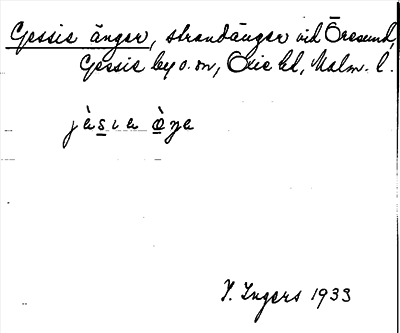 Gessie änger, strandängar vid Öresund,
Gessie by o. sn, Oxie hd, Malm. l.
jὰsιa òna
I. Ingers 1933